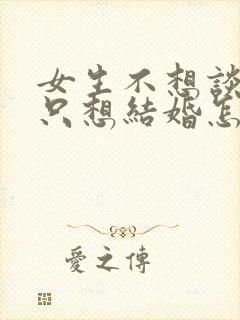 女生不想談
只想結婚怎
愛之傳